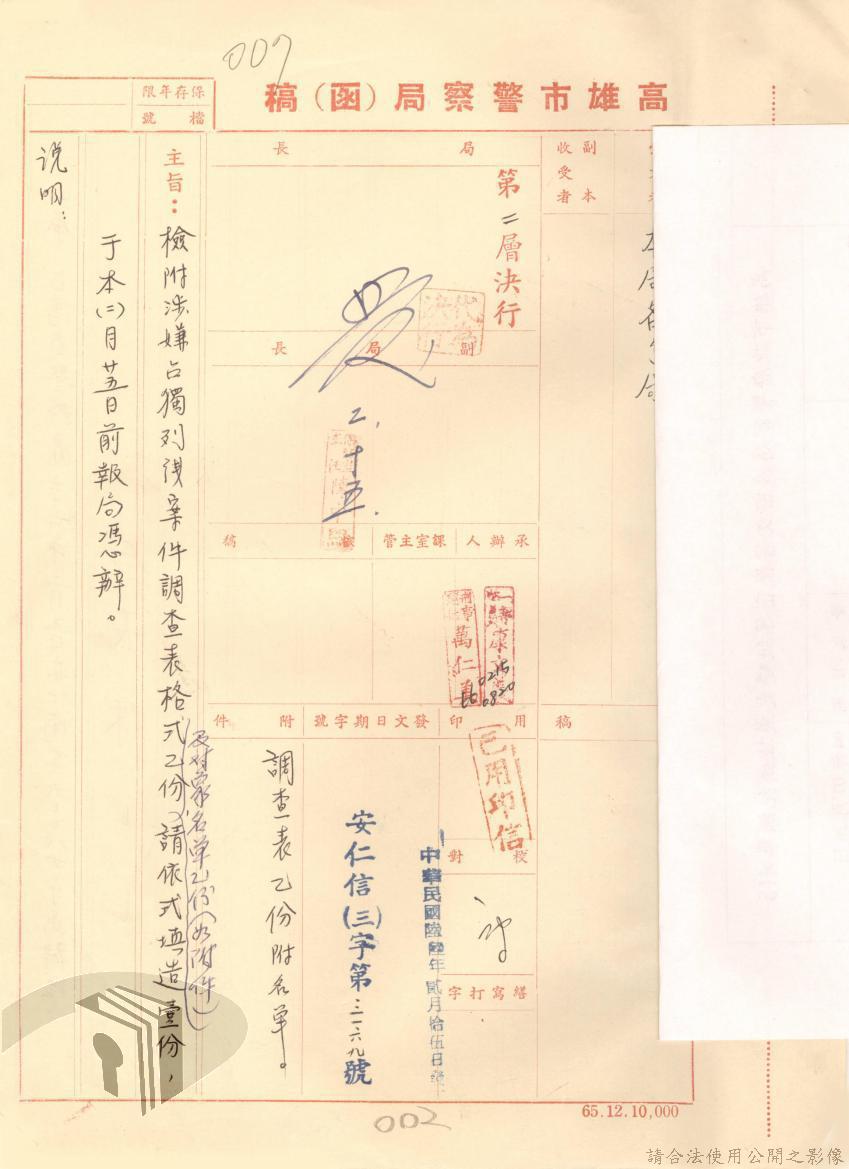 007
高雄市警察局(函)稿
保存年限
檔號
副本
收受者
本局各分局
第二層決行
局長
代為決行
副局長
二、十五.
承辦人
課室主管
核稿
萬仁
0215
0820
稿
用印
已用印信
校對
繕寫打字
發文日期字號
中華民國陸陸年貳月拾伍日發
安仁信(三)字第三一六九號
附件
調查表乙份附名單。
主旨:檢附涉嫌台獨列偵案件調查表格式乙份及對象名單乙份(如附件)請依式填造壹份,
于本(二)月廿五日前報局憑辦。
說明:
65.12.10,000
002
請合法使用公開之影像